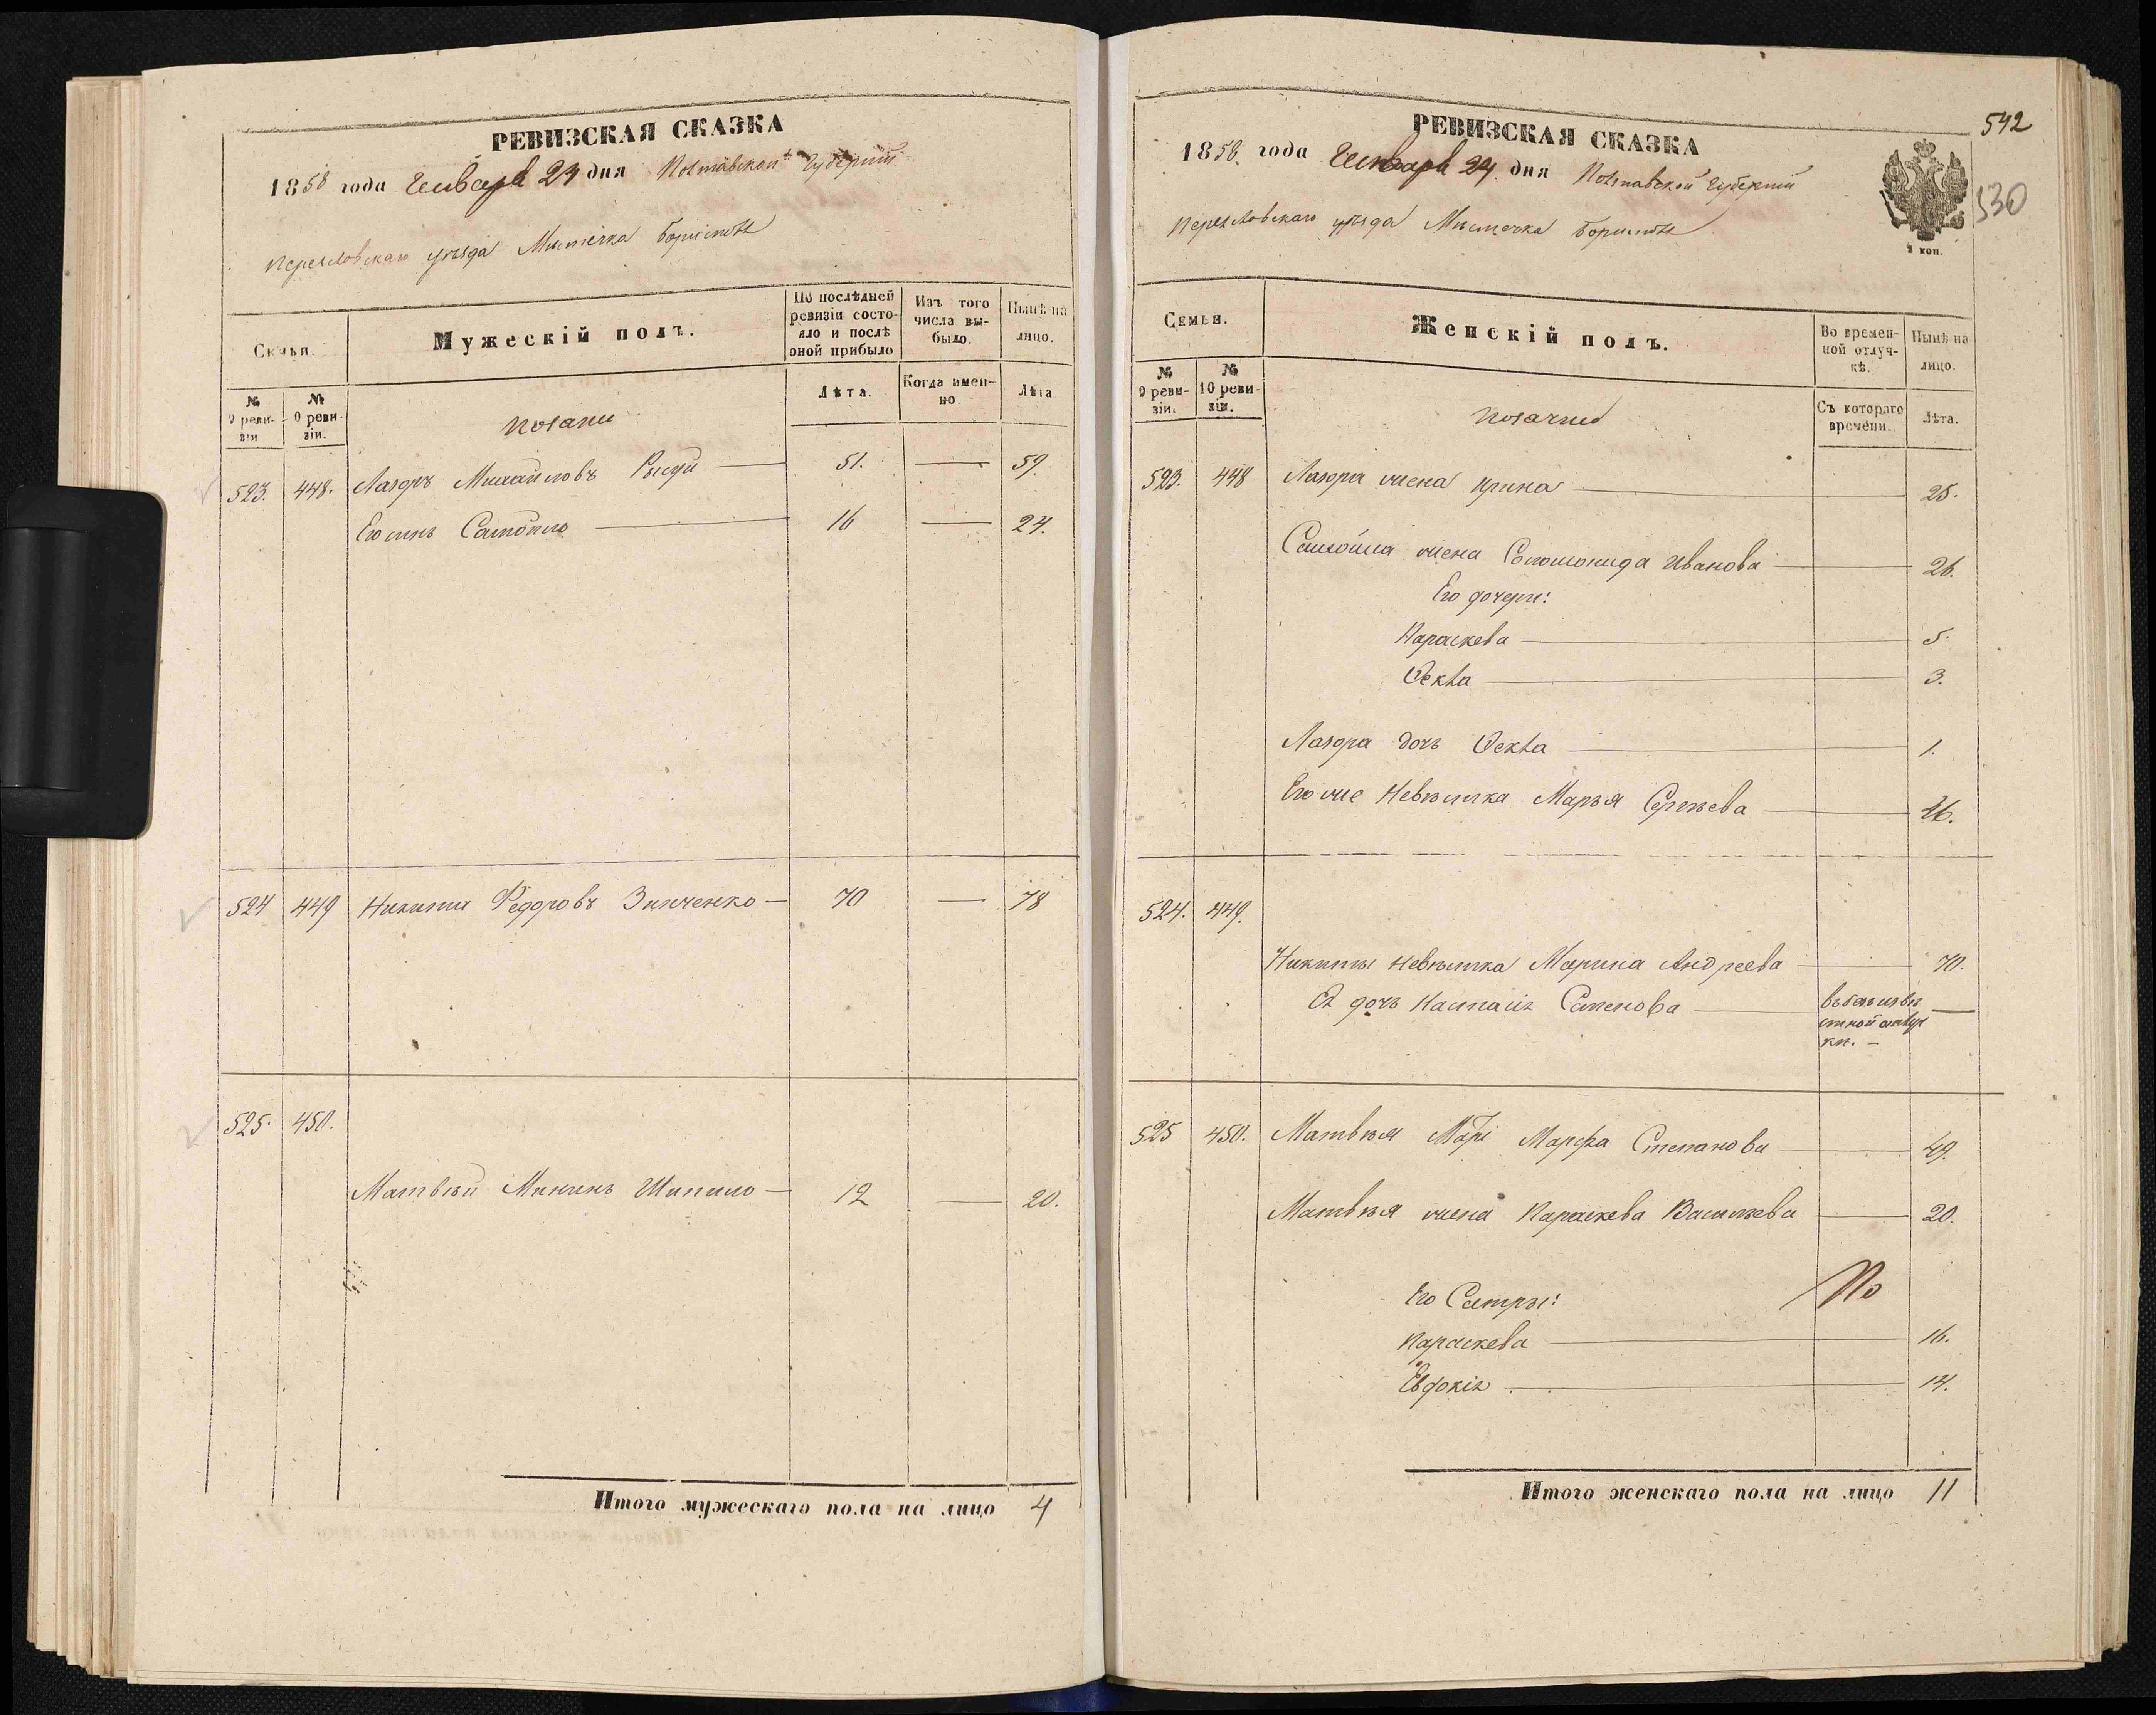 РЕВИЗСКАЯ СКАЗКА
1858 года Генваря 29 дня Полтавской Губерніи
Переяловскаго уѣзда Мѣстечка Борисполя
Семьи.
Мужескій полъ.
По послѣдней ревизіи состояло и послѣ оной прибыло
Изъ того числа выбыло.
Нынѣ на лицо.
№ 9 ревизіи
№ 10 ревизіи.
Козаки
Лѣта.
Когда именно.
Лѣта
523. 448. Лазоръ Михайловъ 51. — 59.
Его сынъ Самойло 16 — 24.
524 449 Никита Федоровъ Зинченко — 70 — 78
525. 450.
Матвѣй Мининъ Шипило — 12 — 20.
Итого мужескаго пола на лицо 4
542
530
РЕВИЗСКАЯ СКАЗКА
1858. года Генваря 29 дня Полтавской Губерніи
Переяловскаго уѣзда Мѣстечка Борисполя
2 коп.
Семьи.
Женскій полъ.
Во временной отлучкѣ.
Нынѣ на лицо.
№ 9 ревизіи.
№ 10 ревизіи.
Козачки
Съ котораго времени.
Лѣта.
523. 448 Лазора жена Ирина — 25.
Самойла жена Соломонида Иванова — 26.
Его дочери:
Параскева — 5.
Фекла — 3.
Лазора дочь Фекла — 1.
Его же Невѣстка Марья Сергѣева —
524. 449.
Никиты невѣстка Марина Андреева — 70.
Ея дочь Настасія Семенова — въ безъизвѣстной отлучкѣ. —
525 450. Матвѣя Марфа Степанова — 49.
Матвѣя жена Параскева Васильева — 20.
Его Сестры:
По
Параскева — 16.
Евдокія — 14.
Итого женскаго пола на лицо 11